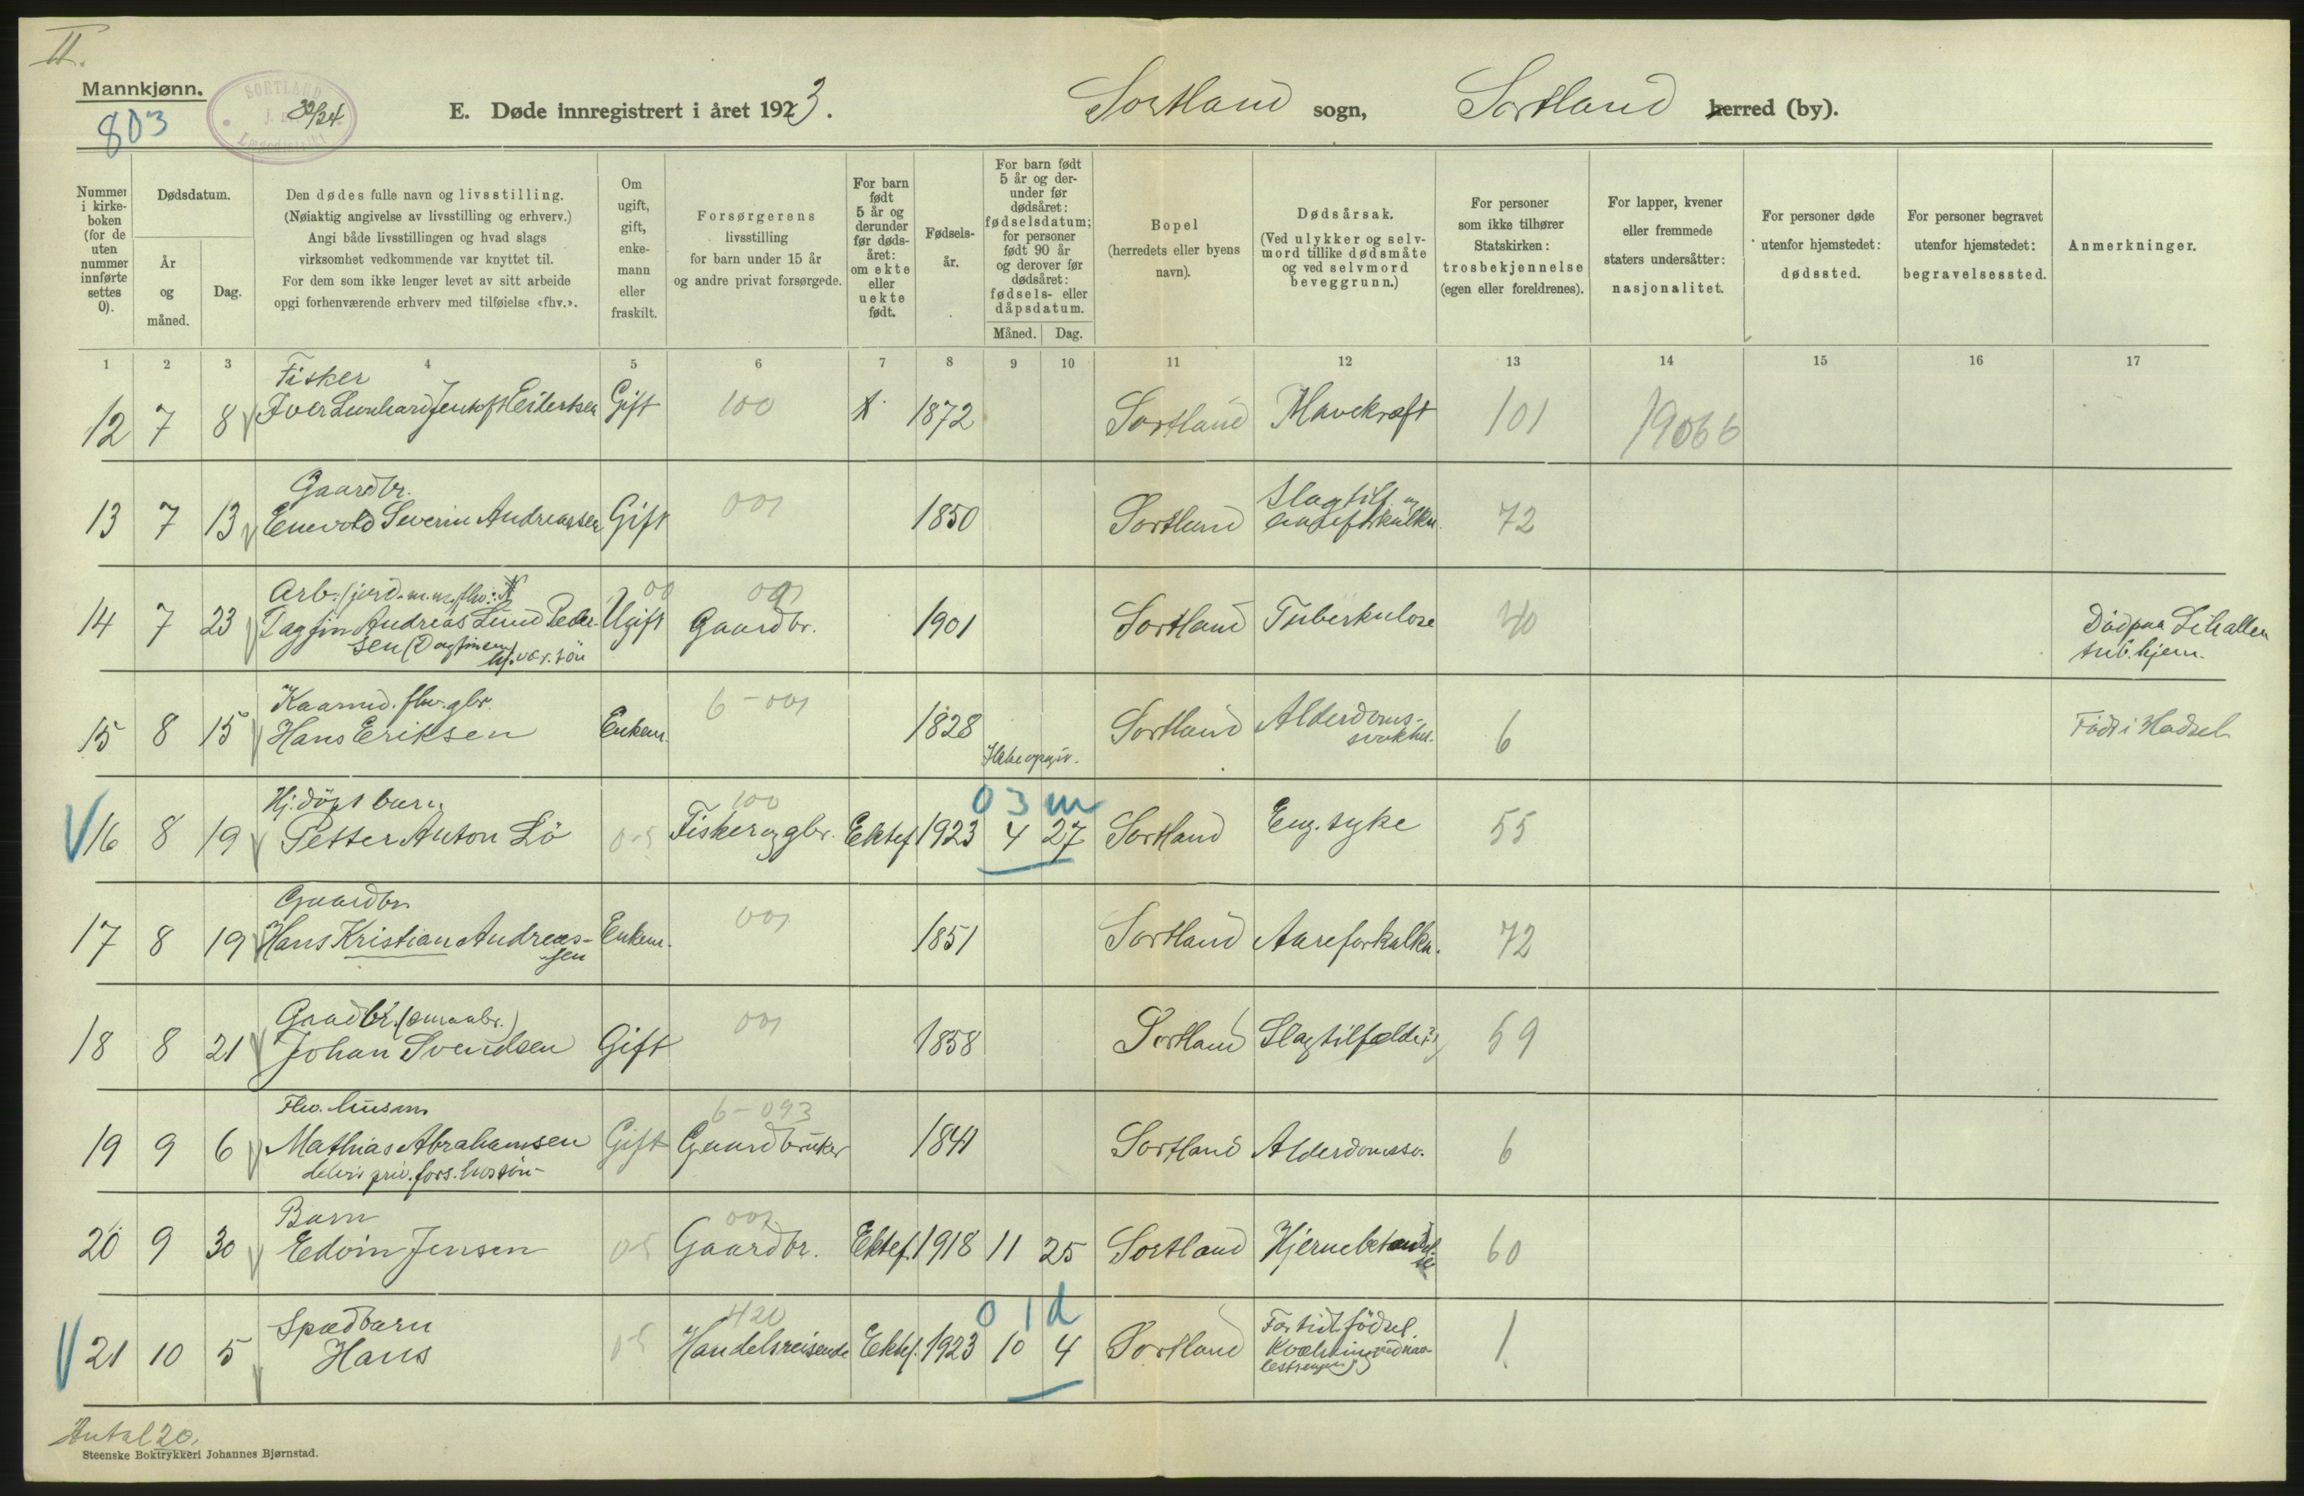 II.
Mannkjønn.
803
SORTLAND
Lægedistrikt
E. Døde innregistrert i året 1923.
Sortland sogn, Sortland herred (by).
Nummer i kirkeboken (for de uten nummer innførte settes 0).
Dødsdatum.
År og måned.
Dag.
Den dødes fulle navn og livsstilling.
(Nøiaktig angivelse av livsstilling og erhverv.)
Angi både livsstillingen og hvad slags
virksomhet vedkommende var knyttet til.
For dem som ikke lenger levet av sitt arbeide
opgi forhenværende erhverv med tilføielse «fhv.».
Om ugift, gift, enkemann eller fraskilt.
Forsørgerens
livsstilling
for barn under 15 år
og andre privat forsørgede.
For barn født 5 år og derunder før dødsåret: om ekte eller uekte født.
Fødselsår.
For barn født 5 år og derunder før dødsåret: fødselsdatum; for personer født 90 år og derover før dødsåret: fødsels- eller dåpsdatum.
Måned. Dag.
Bopel
(herredets eller byens navn).
Dødsårsak.
(Ved ulykker og selvmord tillike dødsmåte og ved selvmord beveggrunn.)
For personer som ikke tilhører Statskirken: trosbekjennelse (egen eller foreldrenes).
For lapper, kvener eller fremmede staters undersåtter: nasjonalitet.
For personer døde utenfor hjemstedet: dødssted.
For personer begravet utenfor hjemstedet: begravelsessted.
Anmerkninger.
1 2 3 4 5 6 7 8 9 10 11 12 13 14 15 16 17
Fisker
12 7 8 Iver Leonhard Jentoft Eilertsen Gift 100 1872 Sortland Mavekræft 101 19066
Gaardbr.
13 7 13 Enevold Severin Andreassen Gift 001 1850 Sortland Slagtilf. og aareforkalkn. 72
Arb. (jord. m.m. fhv.
14 7 23 Dagfin Andreas Lund Pedersen Ugift 00 001 Gaardbr. 1901 Sortland Tuberkulose 40 Död paa tub.hjem.
Kaarmd. fhv. gbr.
15 8 15 Hans Eriksen Enkem. 6-001 1828 Ikke opgiv. Sortland Alderdomssvakhet. 6 Född i Hadsel
Hj.döpt barn
16 8 19 Petter Anton Lö 05 100 Fisker og gbr. Ektef 1923 4 27 03m Sortland Eng.syke 55
Gaardbr
17 8 19 Hans Kristian Andreassen Enkem. 001 1851 Sortland Aareforkalkn. 72
Gaadbr. (smaabr.)
18 8 21 Johan Svendsen Gift 001 1858 Sortland Slagtilfælde (?) 59
Fhv. husm
19 9 6 Mathias Abrahamsen Gift 6-093 Gaardbruker 1841 Sortland Alderdomssv. 6
delvis priv. fors.
Barn
20 9 30 Edvin Jensen 05 001 Gaardbr. Ektef. 1918 11 25 Sortland Hjernebetændelse 60
Spædbarn
21 10 5 Hans 05 420 Handelsreisende Ektef. 1923 10 4 01d Sortland For tidl. födsel. 1
Antal 20.
Steenske Boktrykkeri Johannes Bjørnstad.